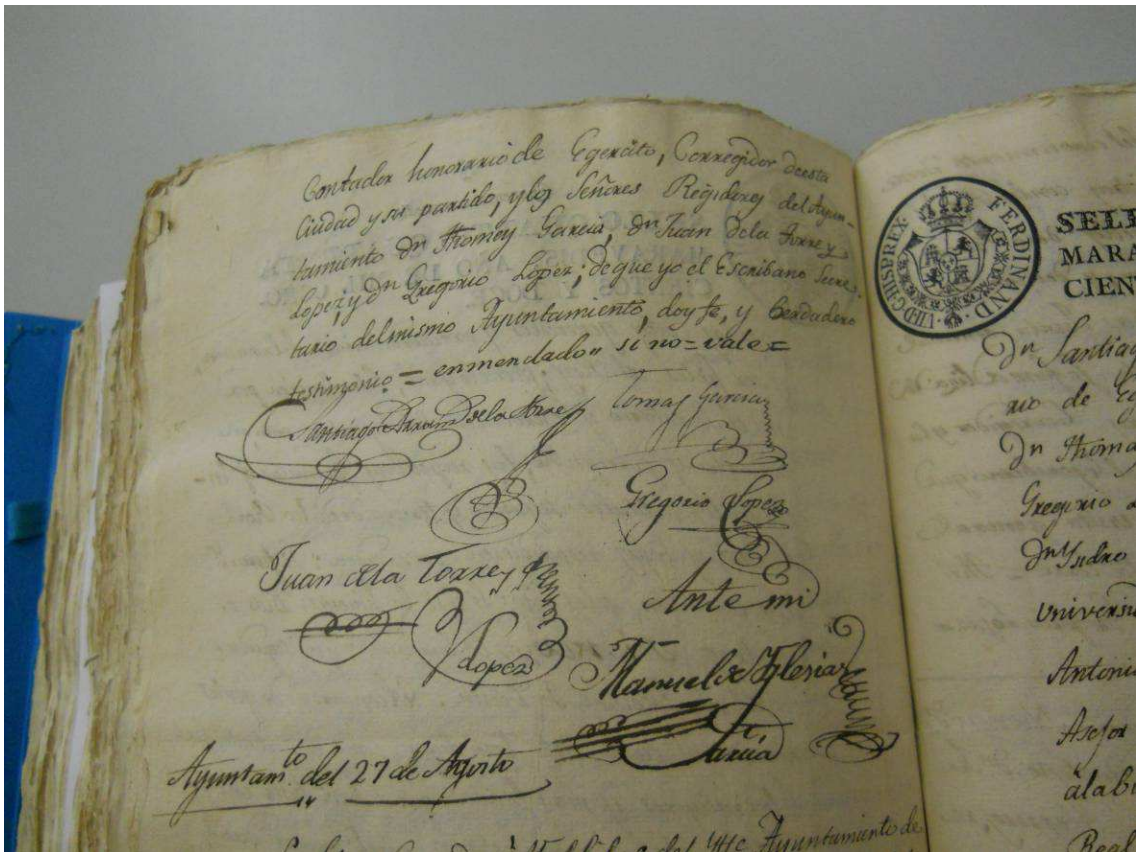 Contador honorario de Egercito, Corregidor deesta
Ciudad y su partido, y los Señores Regidores del Ayun-
tamiento Dn Thomas Garcia, Dn Juan dela Torre y
Lopez, y Dn Gregorio Lopez; de que yo el Escribano Secre-
tario del mismo Ayuntamiento, doy fe, y berdadero
testimonio = enmendado,, si no = vale =
Santiago dela Torre
Tomas Garcia
Gregorio Lopez
Juan dela Torre y
Lopez
Ante mi
Manuel de Yglesias
Garcia
Ayuntamto del 27 de Agosto
Ayuntamiento de
FERDINAND. VII. D.G. HISP. REX.
SELL
MARA
CIEN
Dn Santiag
rio de Eg
Dn Thoma
Gregorio
Dn Ysidro
Universi
Antoni
Asesor
álabi
Real